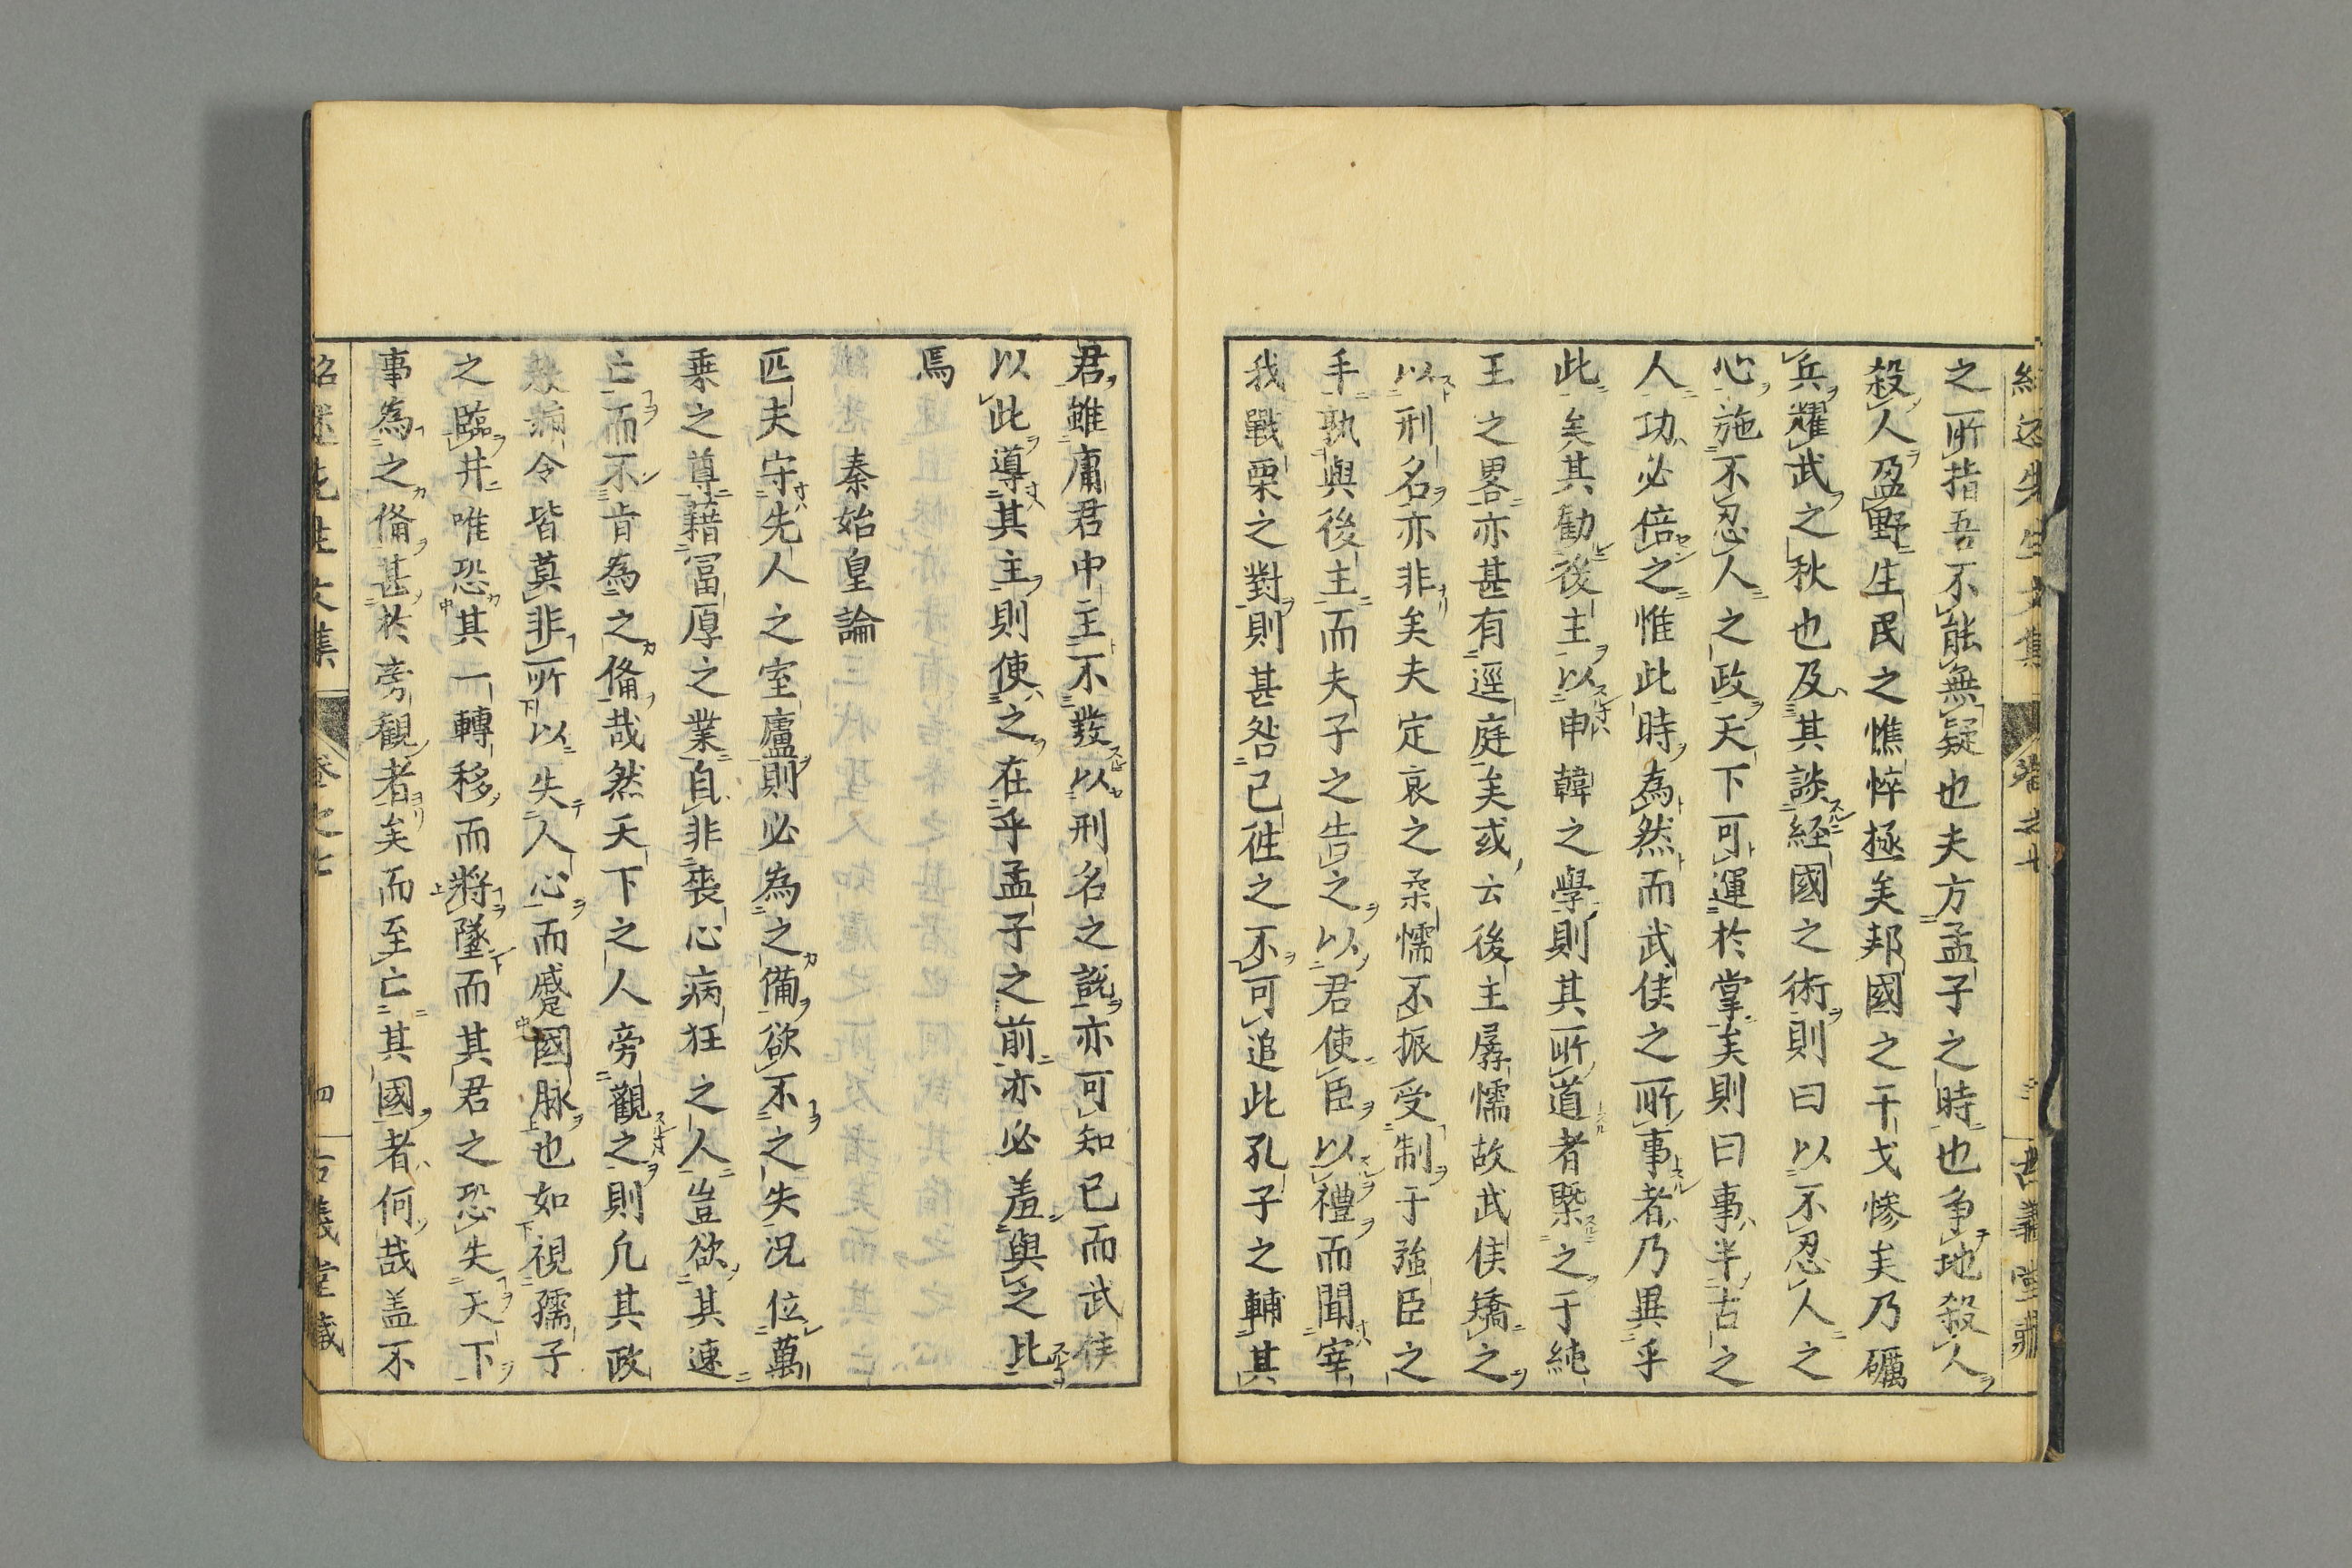 之所指吾不能無疑也夫方孟子之時也爭地殺人
殺人盈野生民之憔悴極矣邦國之干戈慘矣乃礪
兵耀武之秋也及其談経國之術則曰以不忍人之
心施不忍人之政天下可運於掌矣則曰事半古之
人功必倍之惟此時為然而武侯之所事者乃異乎
此矣其勸後主以申韓之學則其所道者槩之于純
王之畧亦甚有逕庭矣或云後主孱懦故武侯矯之
以刑名亦非矣夫定哀之柔懦不振受制于強臣之
手孰與後主而夫子之告之以君使臣以禮而聞宰
我戰栗之對則甚咎已徃之不可追此孔子之輔其
君雖庸君中主不發以刑名之說亦可知已而武侯
以此導其主則使之在乎孟子之前亦必羞與之比
焉
秦始皇論
匹夫守先人之室廬則必為之備欲不之失況位萬
乗之尊藉冨厚之業自非喪心病狂之人豈欲其速
亡而不肯為之備哉然天下之人旁觀之則凢其政
令皆莫非所以失人心而蹙國脉也如視孺子
之臨井唯恐其一轉移而將墜而其君之恐失天下
事為之備甚於旁観者矣而至亡其國者何哉盖不
紹述先生文集 卷之七 四 古義堂藏